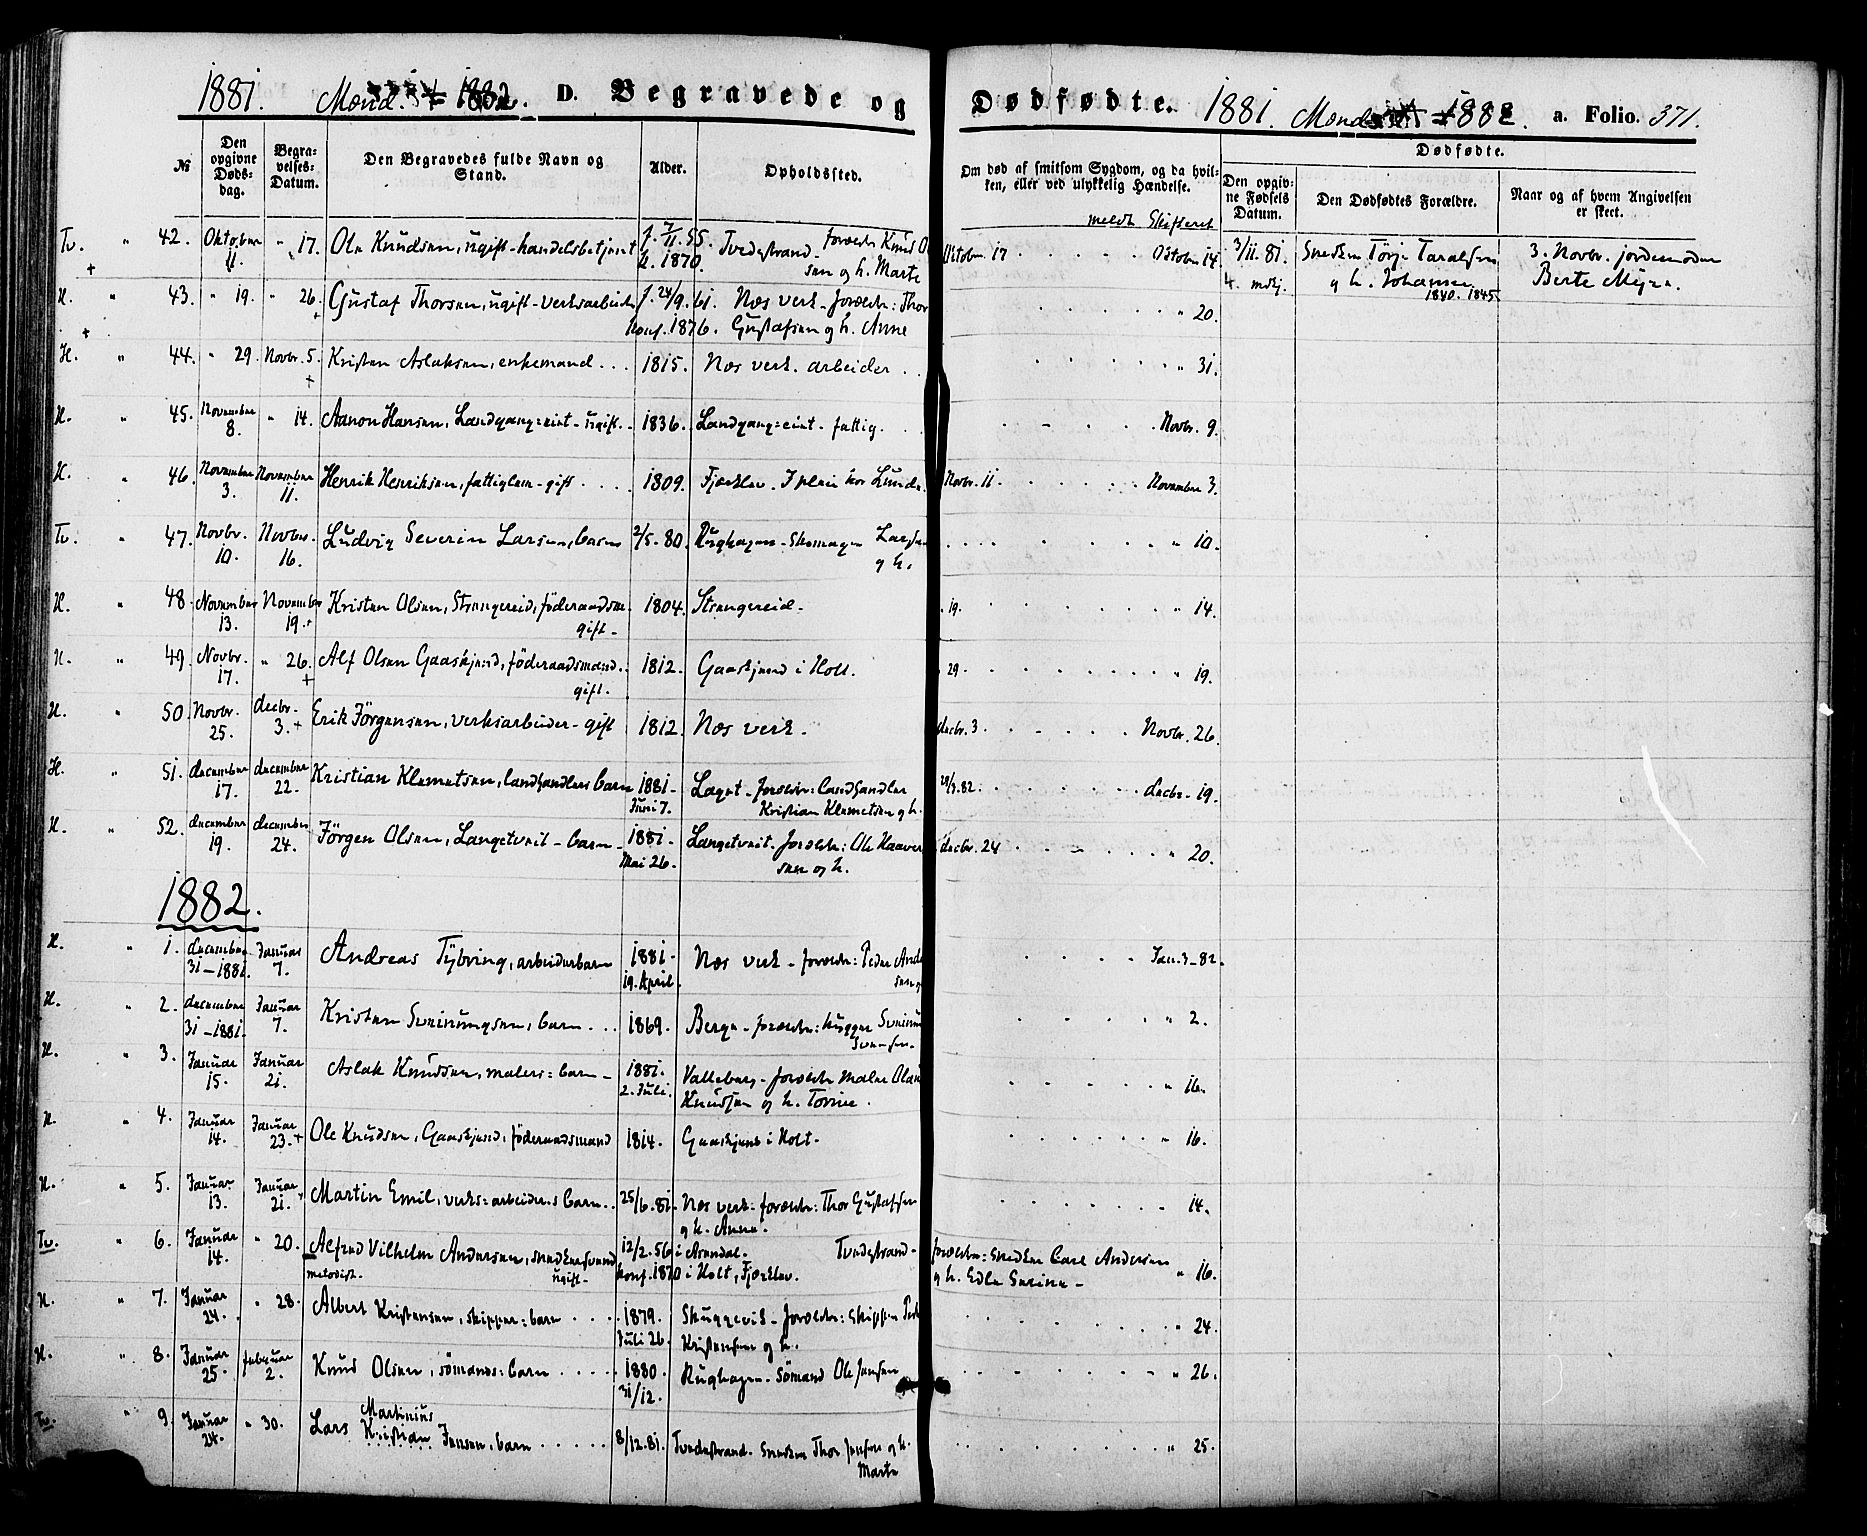 1881. Mænd. 1882. D. Begravede og Dødfødte. 1881. Mænd 1882. a. Folio. 371.
№ Den opgivne Dødsdag. Begravelses-Datum. Den Begravedes fulde Navn og Stand. Alder. Opholdssted. Om død af smitsom Sygdom, og da hvilken, eller ved ulykkelig Hændelse. Dødfødte.
Den opgivne Fødsels Datum. Den Dødfødtes Forældre. Naar og af hvem Angivelsen er skeet.
meldt Skifteret
Tv. " 42. Oktober 11. " 17. Ole Knudsen, ugift - handelsbetjent f. 7/11.55. k. 1870. Tvedestrand - forældr Knud O
sen og h. Marte Oktober 17 Oktober 14 3/11.81. Snedker Törje Taralsen 3. Novbr. jordemoder
4. mdj. og h. Johanne 1840. 1845. Berte Mÿra.
H. " 43. " 19. " 26. Gustaf Thorsen, ugift - verksarbeider f. 24/9.61. Næs verk - forældr: Thor
Konf. 1876. Gustafsen og h. Anne " 20.
H. " 44. " 29. Novbr. 5. Kristen Aslaksen, enkemand ... 1815. Næs verk. arbeider .. " 31.
H. " 45. November 8. " 14. Aanon Hansen, Landgang=eiet - ugift. - 1836. Landgang=eiet - fattig. Novbr. 9.
H. " 46. November 3. November 11. Henrik Henriksen, fattiglem - gift .... 1809. Fjærklev - Ipleie hos Lunde. Novbr. 11. November 3.
Tv. " 47. Novbr. 10. Novbr. 16. Ludvig Severin Larsen, barn 2/5.80. Rughagen - Skomager Larsen
og h. " 10.
H. " 48. November 13. November 19. Kristen Olsen, Strengereid, föderaadsm.
gift - 1804. Strengereid - . 19. " 14.
H. " 49. Novbr. 17. " 26. Alf Olsen Gaaskjend, föderaadsmand.
gift. 1812. Gaaskjend i Holt. . 29 " 19.
H. " 50. Novbr. 25. decbr. 3. Erik Jörgensen, verksarbeider - gift 1812. Næs verk. decbr. 3 Novbr. 26.
H. " 51. december 17. december 22. Kristian Klemetsen, landhandlers barn 1881 - Juni 7. Laget - forældr: landhandler
Kristian Klemetsen og h. decbr - 19.
H. " 52. december 19. december 24. Jörgen Olsen, Langetveit - barn - 1881 - Mai 26. Langetveit. forældr: Ole Haaver
sen og h. decbr. 24 " 20.
1882.
H. " 1. december 31 - 1881. Januar 7. Andreas Tÿbring, arbeiderbarn 1881 - 19. April. Næs verk - forældr: Peder Ander
sen Jan. 3 - 82.
H. " 2. december 31 - 1881. Januar 7. Kristen Sveinungsen, barn ... 1869. Berge - forældr: hugger Sveinun " 2.
H. " 3. Januar 15. Januar 21. Aslak Knudsen, malers: barn - 1881. 2. Juli. Valleberg - forældr maler Olau
Knudsen og h. Torine. " 16.
H. " 4. Januar 14. Januar 23. Ole Knudsen, Gaaskjend, föderaadsmand 1814. Gaaskjend i Holt. " 16.
H. " 5. Januar 13. Januar 21. Martin Emil, verks=arbeiders barn.. 25/6.81. Næs verk: forældr: Thor Gustafsen
og h. Anne. " 14.
Tv. " 6. Januar 14. " 20. Alfred Vilhelm Andersen, snedkersvend 12/2.56 i Arendal. Tvedestrand - forældr: Snedker Carl Andersen " 16.
metodist. ugift - konf. 1870 i Holt, Fjærklev. og h. Edle Serine -
H. " 7. Januar 24. " 28. Albert Kristensen, skipper=barn .... 1879. Juli 26. Skuggevik - forældr: Skipper Peder
Kristensen og h. " 24.
H. " 8. Januar 25. februar 2. Knud Olsen, sömands=barn ..... 1880. 31/12. Rughagen - Sömand Ole Jensen " 26.
Tv. " 9. Januar 24. " 30. Lars Martinius Kristian Jensen, barn ..... 8/12.81. Tvedestrand. Snedker Thor Jensen og h.
Marte " 25.